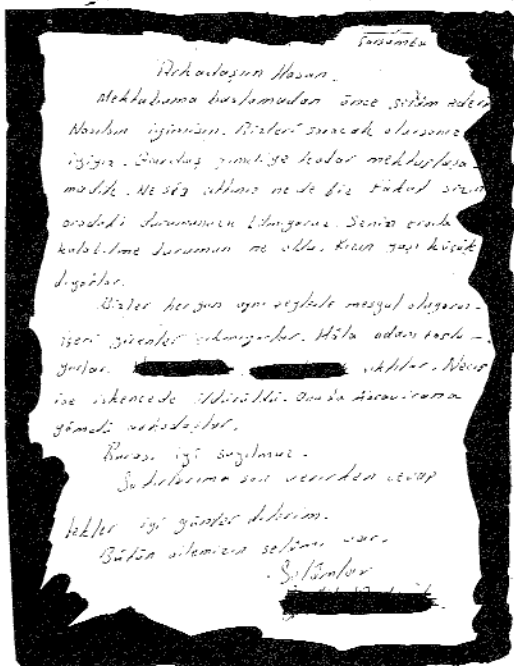 Çarşamba
Arkadaşım Hasan.
Mektubuma başlamadan önce selâm ederim
Nasılsın iyimisin. Bizleri soracak olursanız
iyiyiz. şimdiye kadar mektuplaşa-
madık. Ne siz attınız ne de biz fakat sizin
oradaki durumunuzu bilmiyoruz. Senin orada
kalabilme durumun ne oldu. Kızın yaşı küçük
diyorlar.
Bizler hergün aynı şeylerle meşgul oluyoruz.
içeri girenler çıkmıyorlar. Hâla adam toplu-
yorlar. çıktılar.
ise işkencede öldürüldü. Onuda
gömdü arkadaşlar.
Burası iyi sayılmaz.
Satırlarıma son verirken cevap
bekler iyi günler dilerim.
Bütün ailemizin selâmı var.
Selâmlar